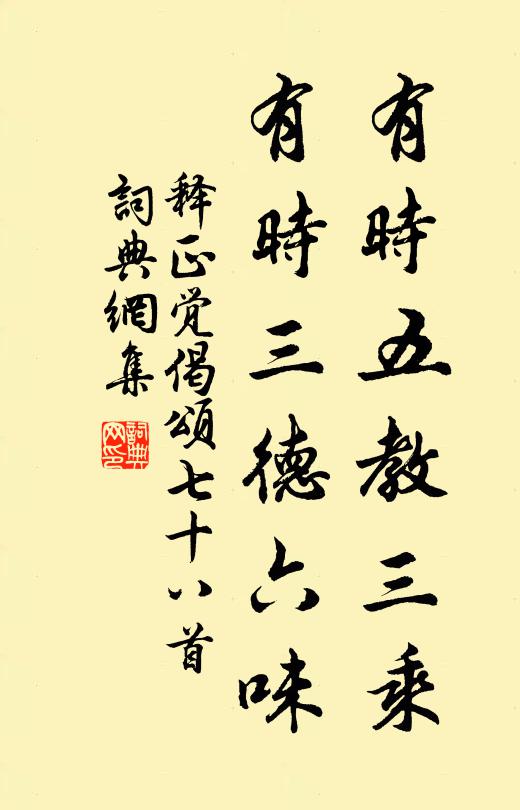 有時五教三乘
有時三德六味
释正觉偈頌七十八首
詞典網集
詞典网印